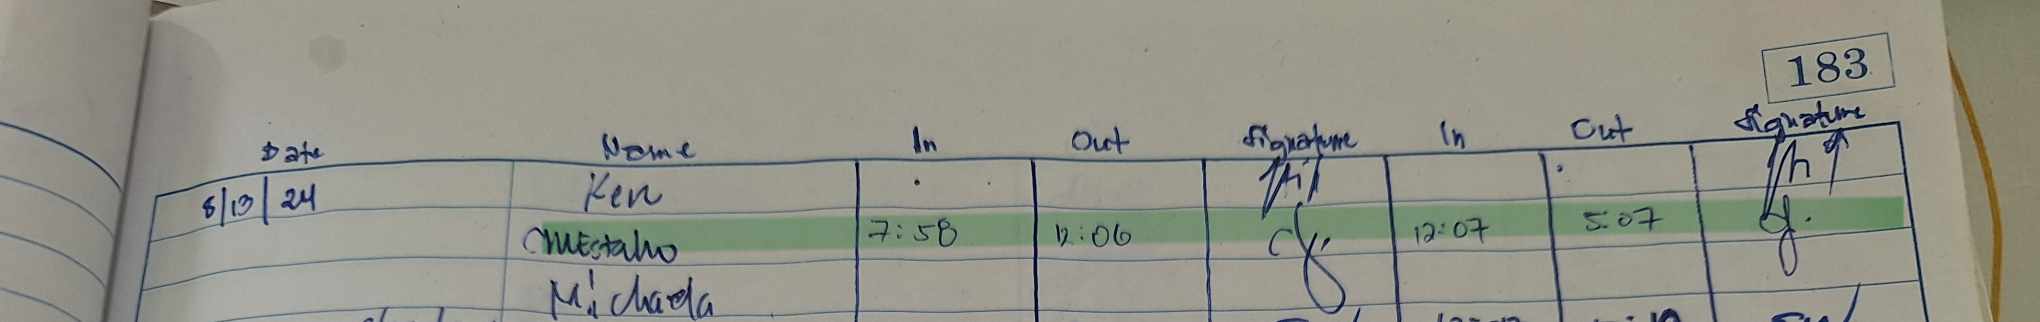 183
Date Name In Out Signature In Out Signature
8/13/24 Ken
CMEstaño 7:58 12:06 12:07 5:07
Michaela